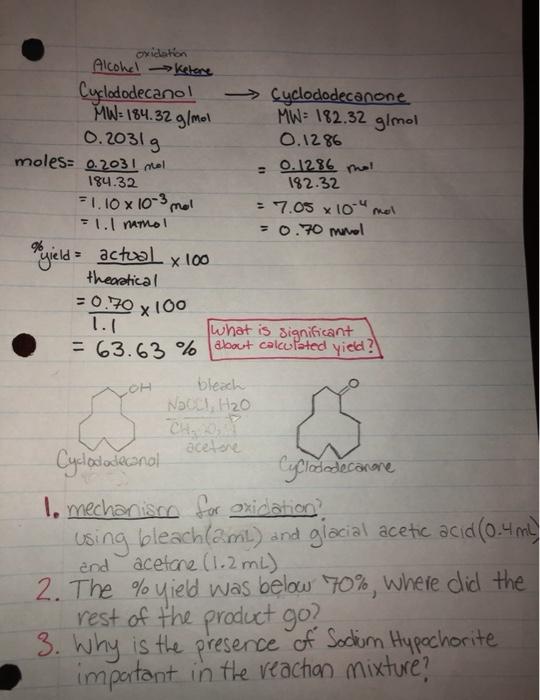 oxidation
Alcohol → Ketone
Cyclododecanol → Cyclododecanone
MW= 184.32 g/mol MW= 182.32 g/mol
0.2031 g 0.1286
moles= 0.2031 mol = 0.1286 mol
184.32 182.32
= 1.10 x 10-3 mol = 7.05 x 10-4 mol
= 1.1 mmol = 0.70 mmol
% yield = actual x 100
theoretical
= 0.70 x 100
1.1
= 63.63 %
What is significant
about calculated yield?
OH bleach O
NaOCl, H2O
acetone
Cyclododecanol Cyclododecanone
1. mechanism for oxidation?
using bleach (2mL) and glacial acetic acid (0.4mL)
and acetone (1.2 mL)
2. The % yield was below 70%, where did the
rest of the product go?
3. Why is the presence of Sodium Hypochorite
important in the reaction mixture?